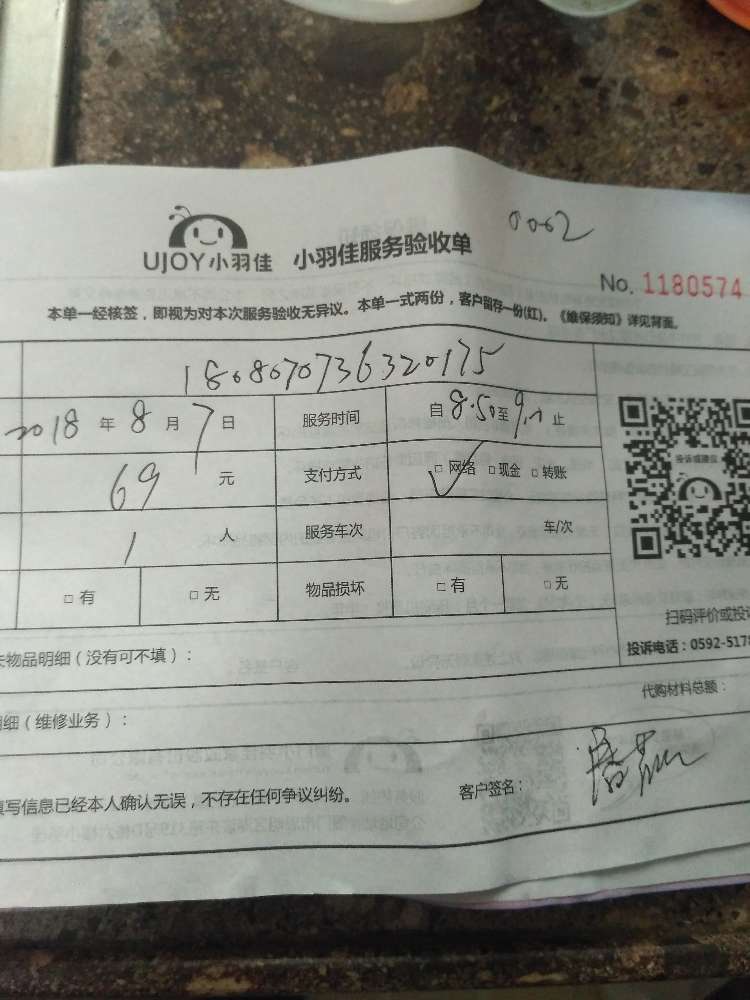 0062
UJOY小羽佳 小羽佳服务验收单
No. 1180574
本单一经核签，即视为对本次服务验收无异议。本单一式两份，客户留存一份(红)。《维保须知》详见背面。
1808070736320175
2018 年 8 月 7 日 服务时间 自 8.50 至 止
69 元 支付方式 □网络 □现金 □转账
1 人 服务车次 车/次
□有 □无 物品损坏 □有 □无
投诉或建议
扫码评价或投诉
物品明细（没有可不填）：
投诉电话：0592-5178
代购材料总额：
明细（维修业务）：
填写信息已经本人确认无误，不存在任何争议纠纷。 客户签名：